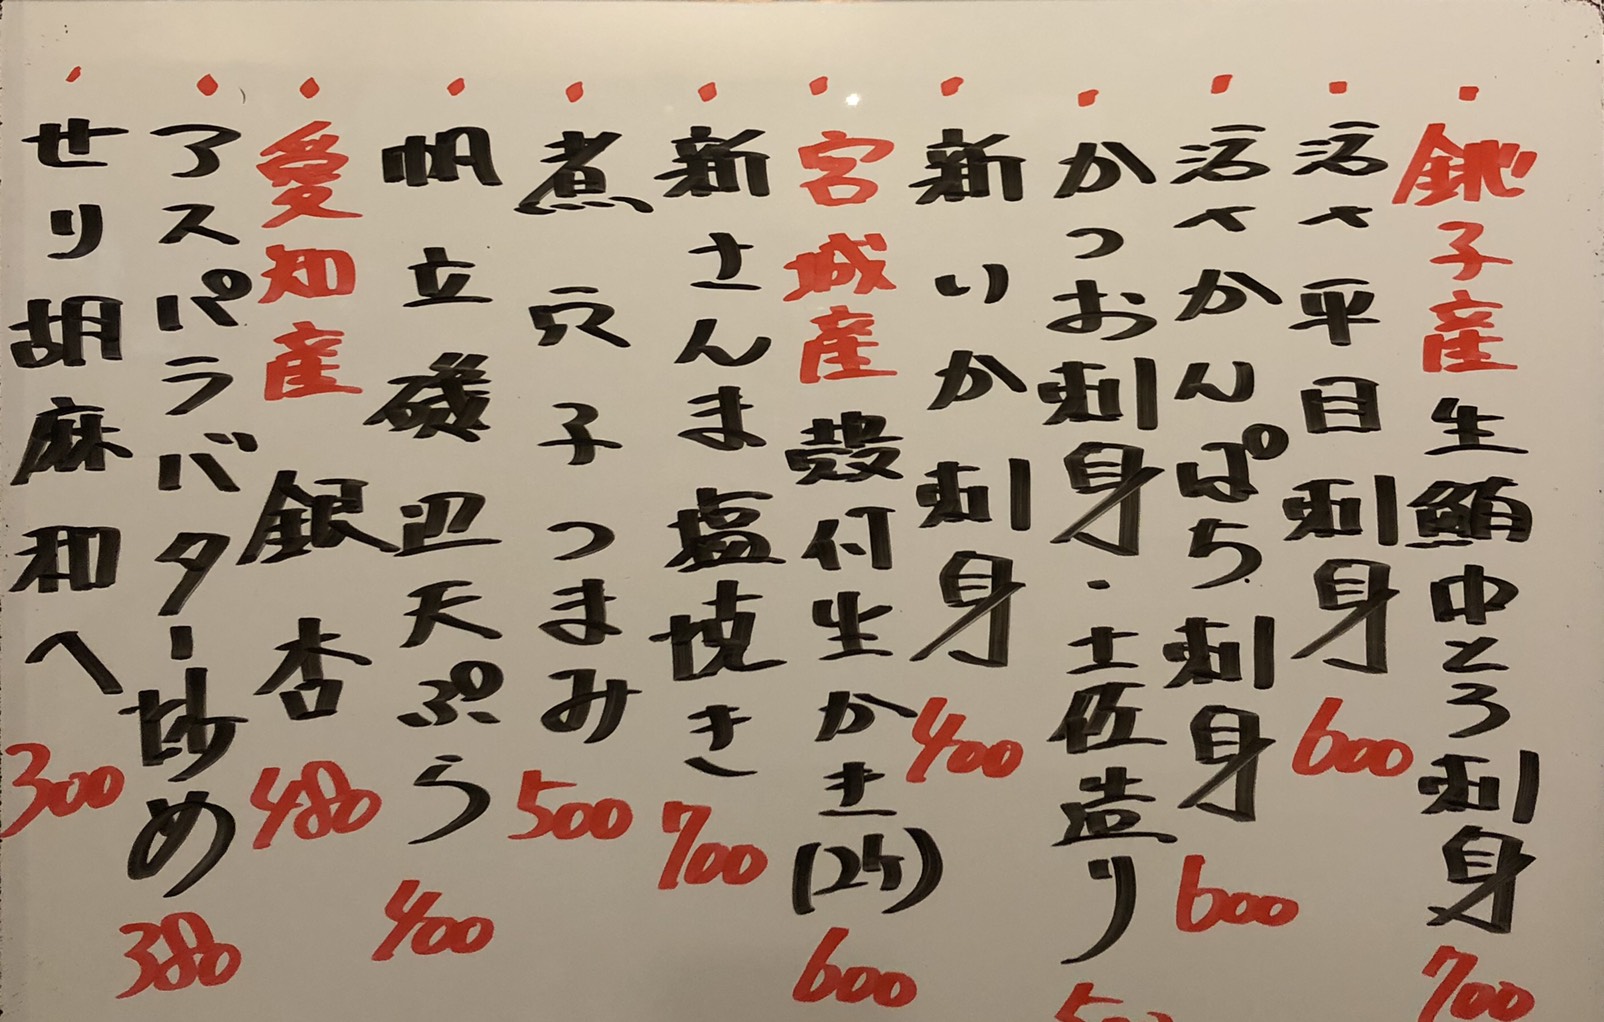 銚子産生鮪中とろ刺身 700
活〆平目刺身 600
活〆かんぱち刺身 600
かつお刺身・土佐造り
新いか刺身 400
宮城産殻付生かき(2ケ) 600
新さんま塩焼き 700
煮穴子つまみ 500
帆立磯辺天ぷら 400
愛知産銀杏 480
アスパラバター炒め 380
せり胡麻和へ 300